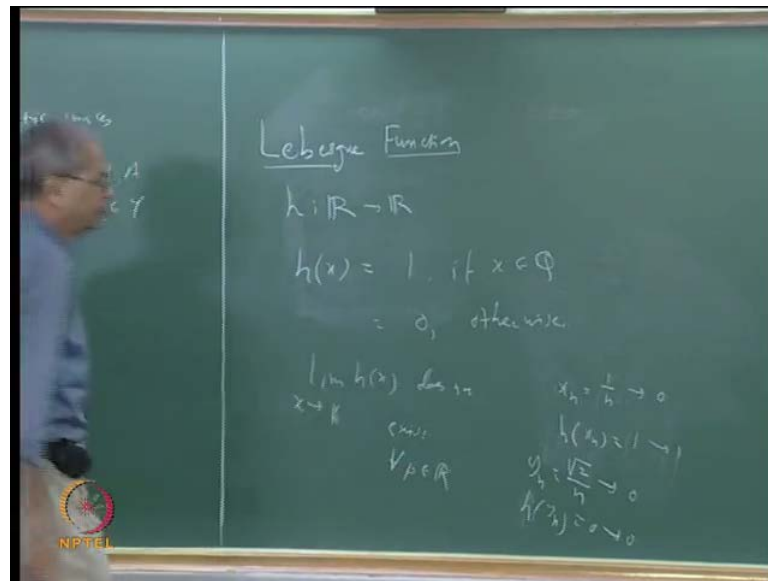 A
∈ Y
Lebesgue Function
h : ℝ → ℝ
h(x) = 1, if x ∈ ℚ
= 0, otherwise
lim h(x) does n
x →
exist
∀ p ∈ ℝ
xₙ = 1/n → 0
h(xₙ) = 1 → 1
yₙ = √2/n → 0
h(yₙ) = 0 → 0
NPTEL